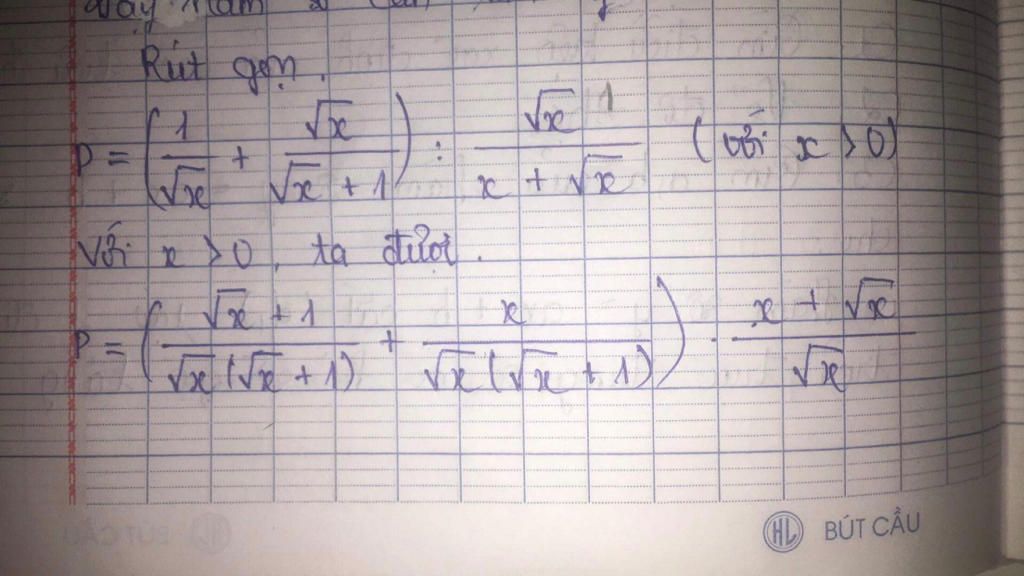 Rút gọn.
P = (1/√x + √x/(√x + 1)) : √x/(x + √x) (với x > 0)
Với x > 0, ta được.
P = ((√x + 1)/(√x(√x + 1)) + x/(√x(√x + 1))) . (x + √x)/√x
HL BÚT CẦU